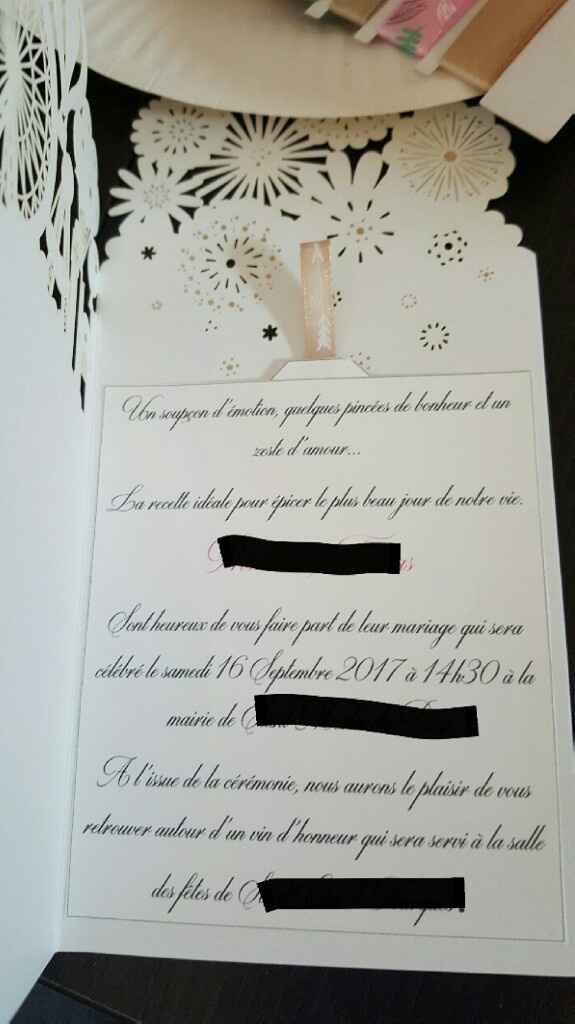 Un soupçon d'émotion, quelques pincées de bonheur et un
zeste d'amour...
La recette idéale pour épicer le plus beau jour de notre vie.
Sont heureux de vous faire part de leur mariage qui sera
célébré le samedi 16 Septembre 2017 à 14h30 à la
mairie de
A l'issue de la cérémonie, nous aurons le plaisir de vous
retrouver autour d'un vin d'honneur qui sera servi à la salle
des fêtes de